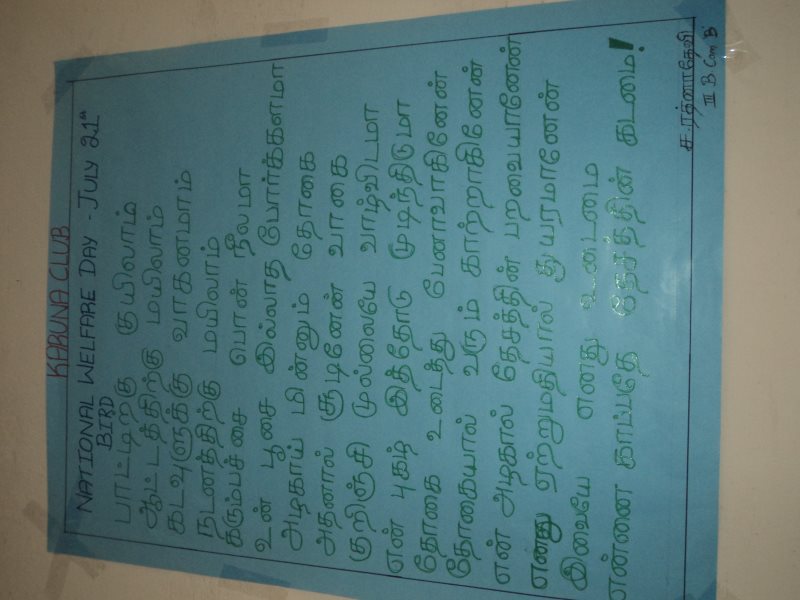 KARUNA CLUB
NATIONAL WELFARE DAY - JULY 21st
BIRD
பாட்டிற்கு குயிலாம்
ஆட்டத்திற்கு மயிலாம்
கடவுளுக்கு வாகனமாம்
நடனத்திற்கு மயிலாம்
கரும்பச்சை பொன் நீலமா
உன் பூசை இல்லாத போர்க்களமா
அழகாய் மின்னும் தோகை
அதனால் சூடினேன் வாகை
குறிஞ்சி முல்லையே வாழ்விடமா
என் புகழ் இத்தோடு முடிந்திடுமா
தோகை உடைத்து பேனாவாகினேன்
தோகையால் வரும் காற்றாகினேன்
என் அழகால் தேசத்தின் பறவையானேன்
எனது ஏற்றுமதியால் துயரமானேன்
இவையே எனது உடைமை
என்னை காப்பதே தேசத்தின் கடமை!
ச. ரத்னாதேவி
III B Com 'B'